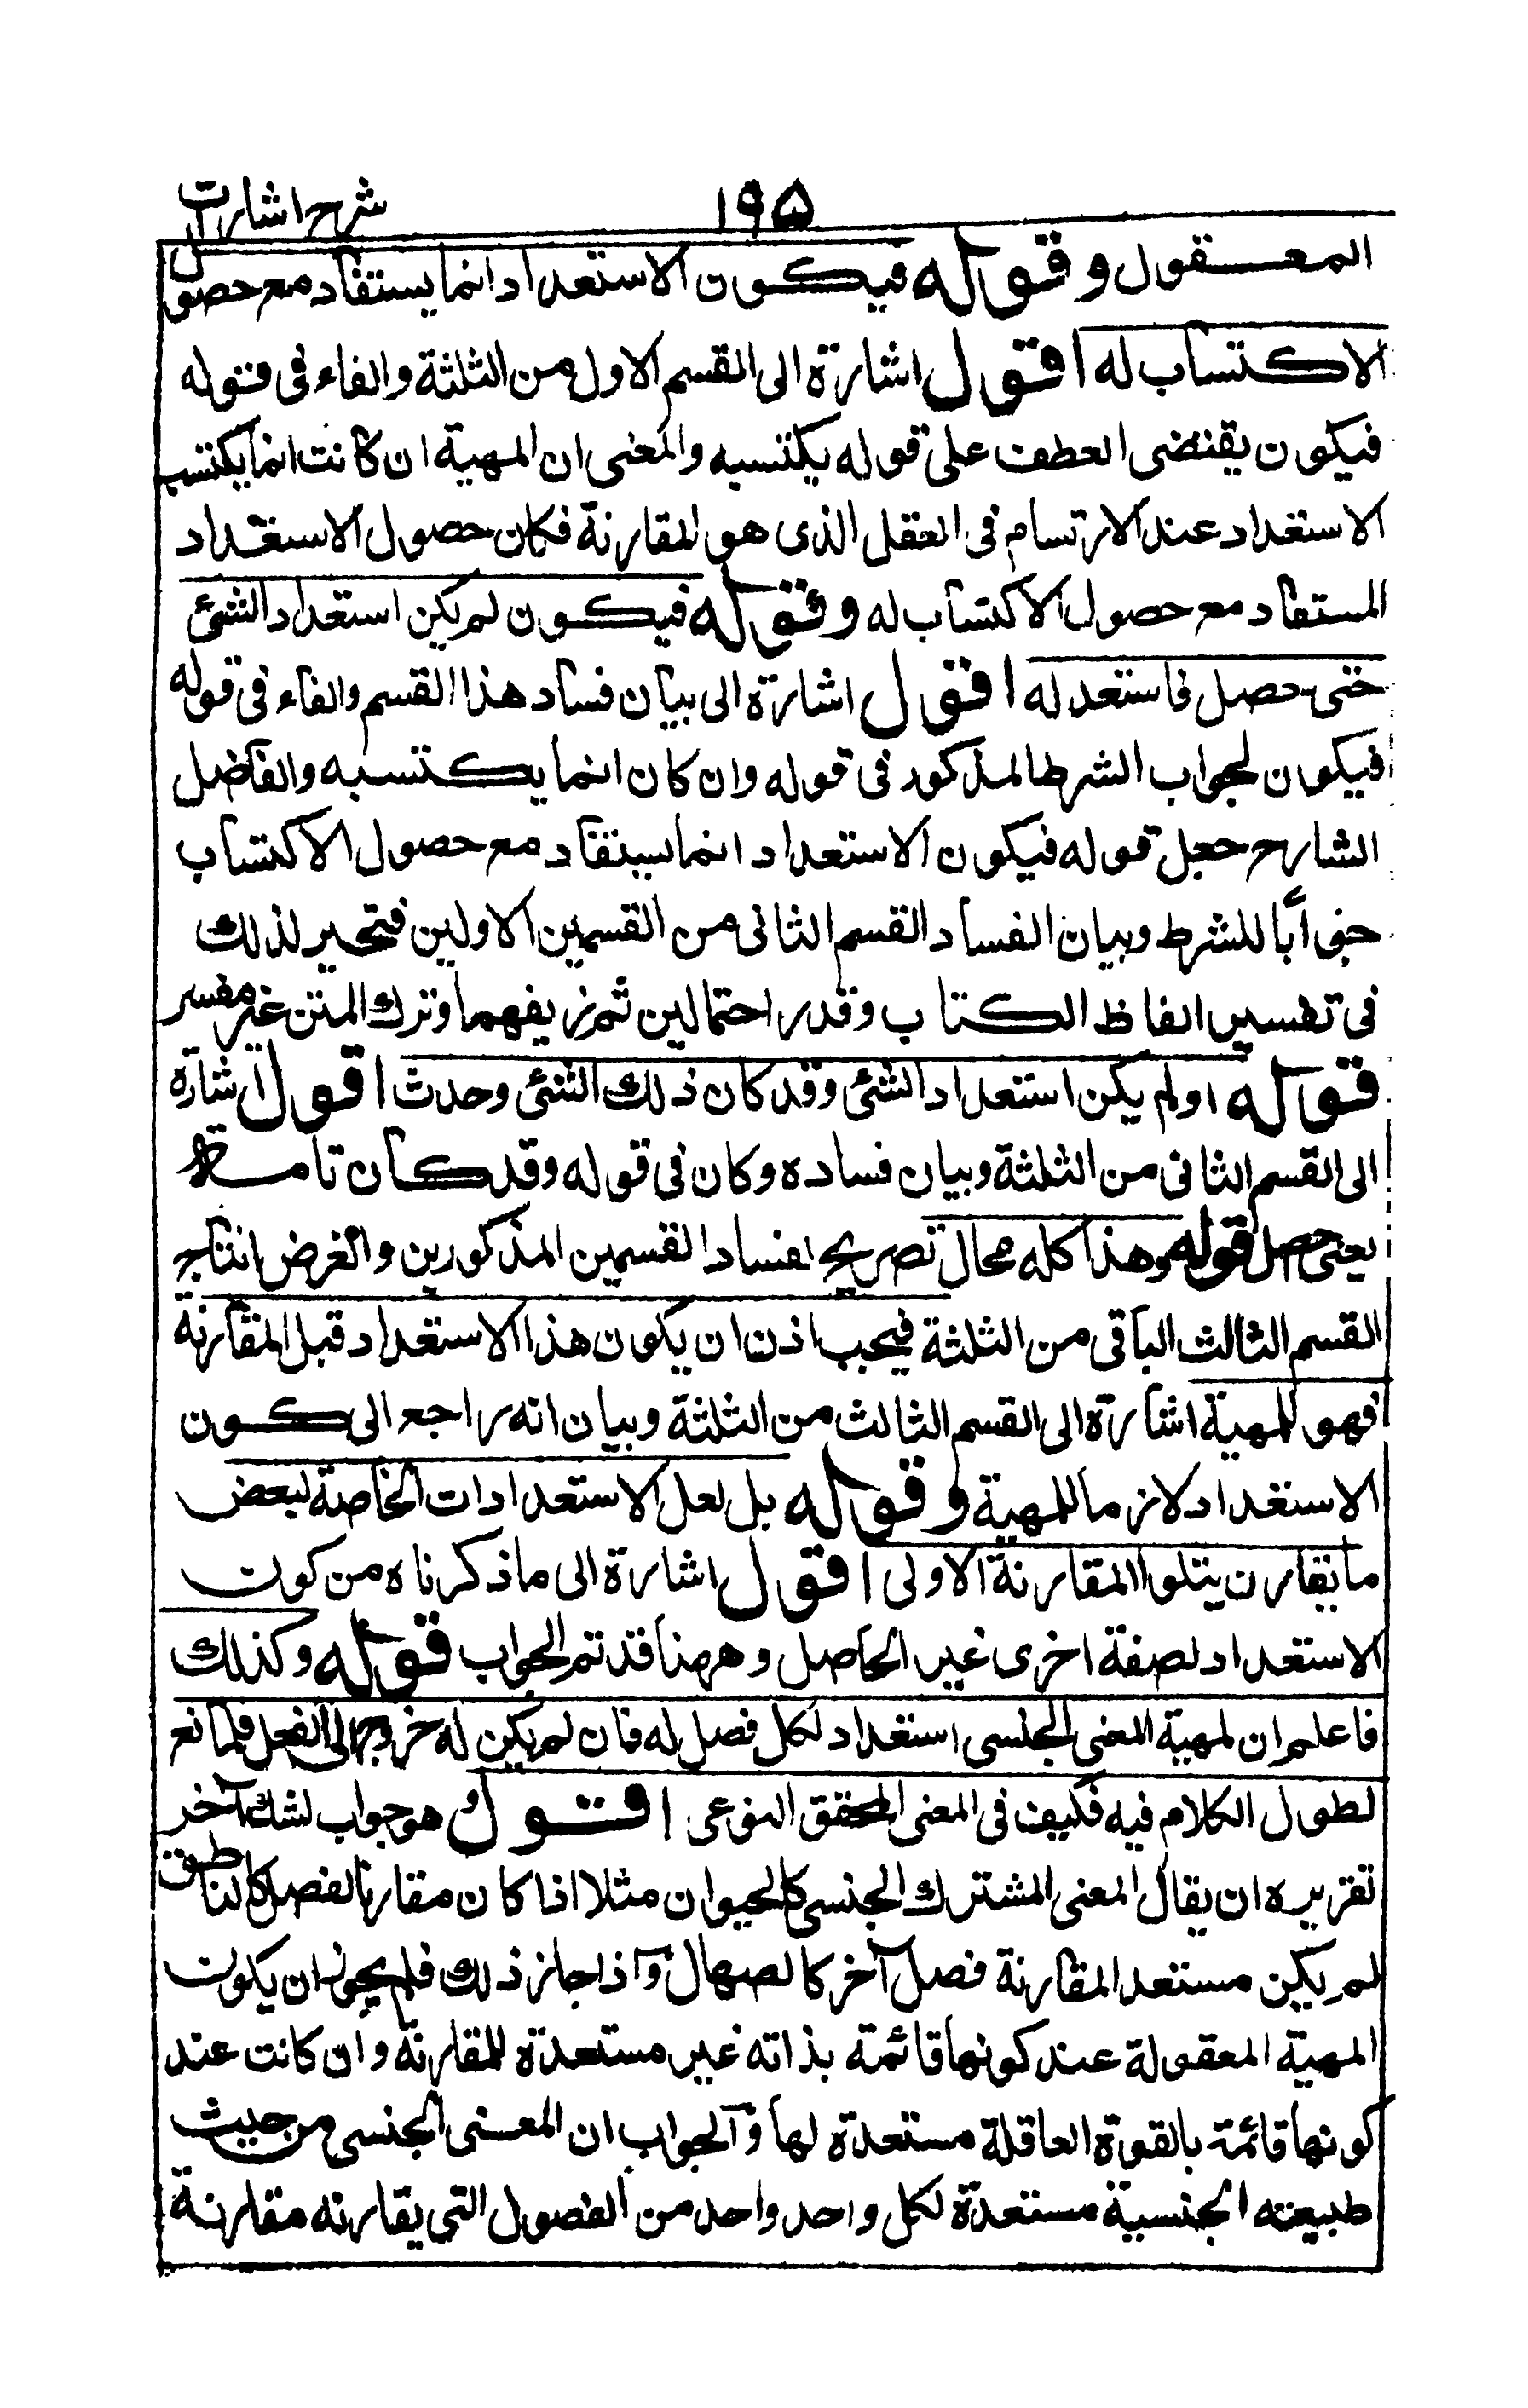 شرح اشارات
١٩٥
المعقول وقوله فيكون الاستعداد انما يستفاد مع حصول
الاكتساب له اقول اشارة الى القسم الاول من الثلثة والفاء فى قوله
فيكون يقتضى العطف على قوله يكتسبه والمعنى ان المهية ان كانت انما يكتسب
الاستعداد عند الارتسام فى العقل الذى هو المقارنة فكان حصول الاستعداد
المستفاد مع حصول الاكتساب له وقوله فيكون لم يكن استعداد الشئ
حتى حصل فاستعد له اقول اشارة الى بيان فساد هذا القسم والفاء فى قوله
فيكون لجواب الشرط المذكور فى قوله وان كان انما يكتسبه والفاضل
الشارح جعل قوله فيكون الاستعداد انما يستفاد مع حصول الاكتساب
جوابا للشرط وبيان الفساد القسم الثانى من القسمين الاولين فتحير لذلك
فى تفسير الفاظ الكتاب وقدر احتمالين ثم زيفهما وترك المتن غير مفسر
قوله اولم يكن استعداد الشئ وقد كان ذلك الشئ وحدث اقول اشارة
الى القسم الثانى من الثلثة وبيان فساده وكان فى قوله وقد كان تامة
يعنى حصل قوله وهذا كله محال تصريح بفساد القسمين المذكورين والغرض انتاج
القسم الثالث الباقى من الثلثة فيجب اذن ان يكون هذا الاستعداد قبل المقارنة
فهو للمهية اشارة الى القسم الثالث من الثلثة وبيان انه راجع الى كون
الاستعداد لازما للمهية وقوله بل لعل الاستعدادات الخاصة لبعض
ما يقارن يتلوا المقارنة الاولى اقول اشارة الى ما ذكرناه من كون
الاستعداد لصفة اخرى غير الحاصل وههنا قد تم الجواب قوله وكذلك
فاعلم ان لمهية المعنى الجنسى استعداد لكل فصل له فان لم يكن له خروج الى الفعل فلمانع
لطول الكلام فيه فكيف فى المعنى المحقق النوعى اقول وهو جواب لشك آخر
تقريره ان يقال المعنى المشترك الجنسى كالحيوان مثلا اذا كان مقارنا لفصل كالناطق
لم يكن مستعد المقارنة فصل آخر كالصهال واذا جاز ذلك فلم يجوز ان يكون
المهية المعقولة عند كونها قائمة بذاته غير مستعدة للمقارنة وان كانت عند
كونها قائمة بالقوة العاقلة مستعدة لها والجواب ان المعنى الجنسى من حيث
طبيعته الجنسية مستعدة لكل واحد واحد من الفصول التى يقارنه مقارنة